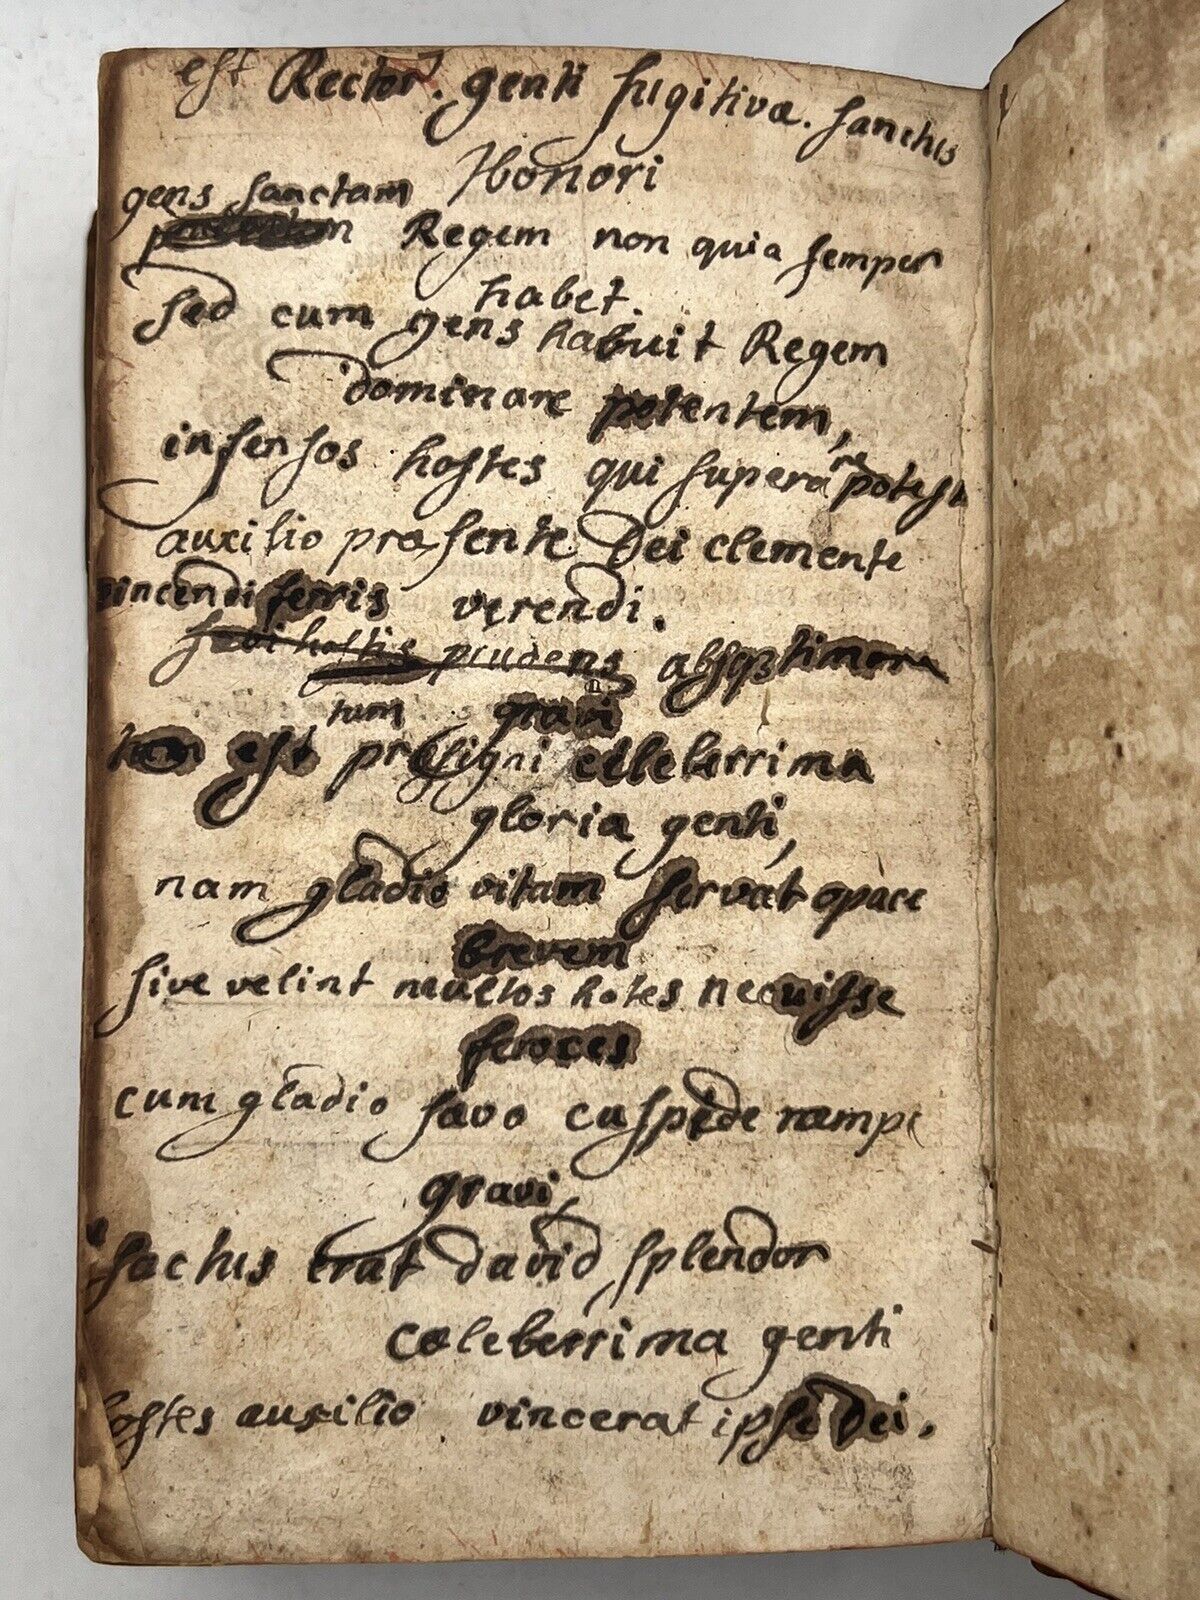 est Rector. genti fugitivæ. sanctus
Honori
gens sanctam
Regem non quia semper
habet.
sed cum gens habuit Regem
dominare potentem,
infensos hostes qui superare potest
auxilio præsente Dei clemente
vincendi ferris verendi.
sævi hostis prudens absq3 timore
tum gravi
tum est præsigni celeberrima
gloria genti,
nam gladio vitam servat opace
brevem
sive velint multos hotes nequisse
feroces
cum gladio sævo cuspide
gravi,
erat david splendor
cæleberrima genti
hostes auxilio vincerat ipse Dei.